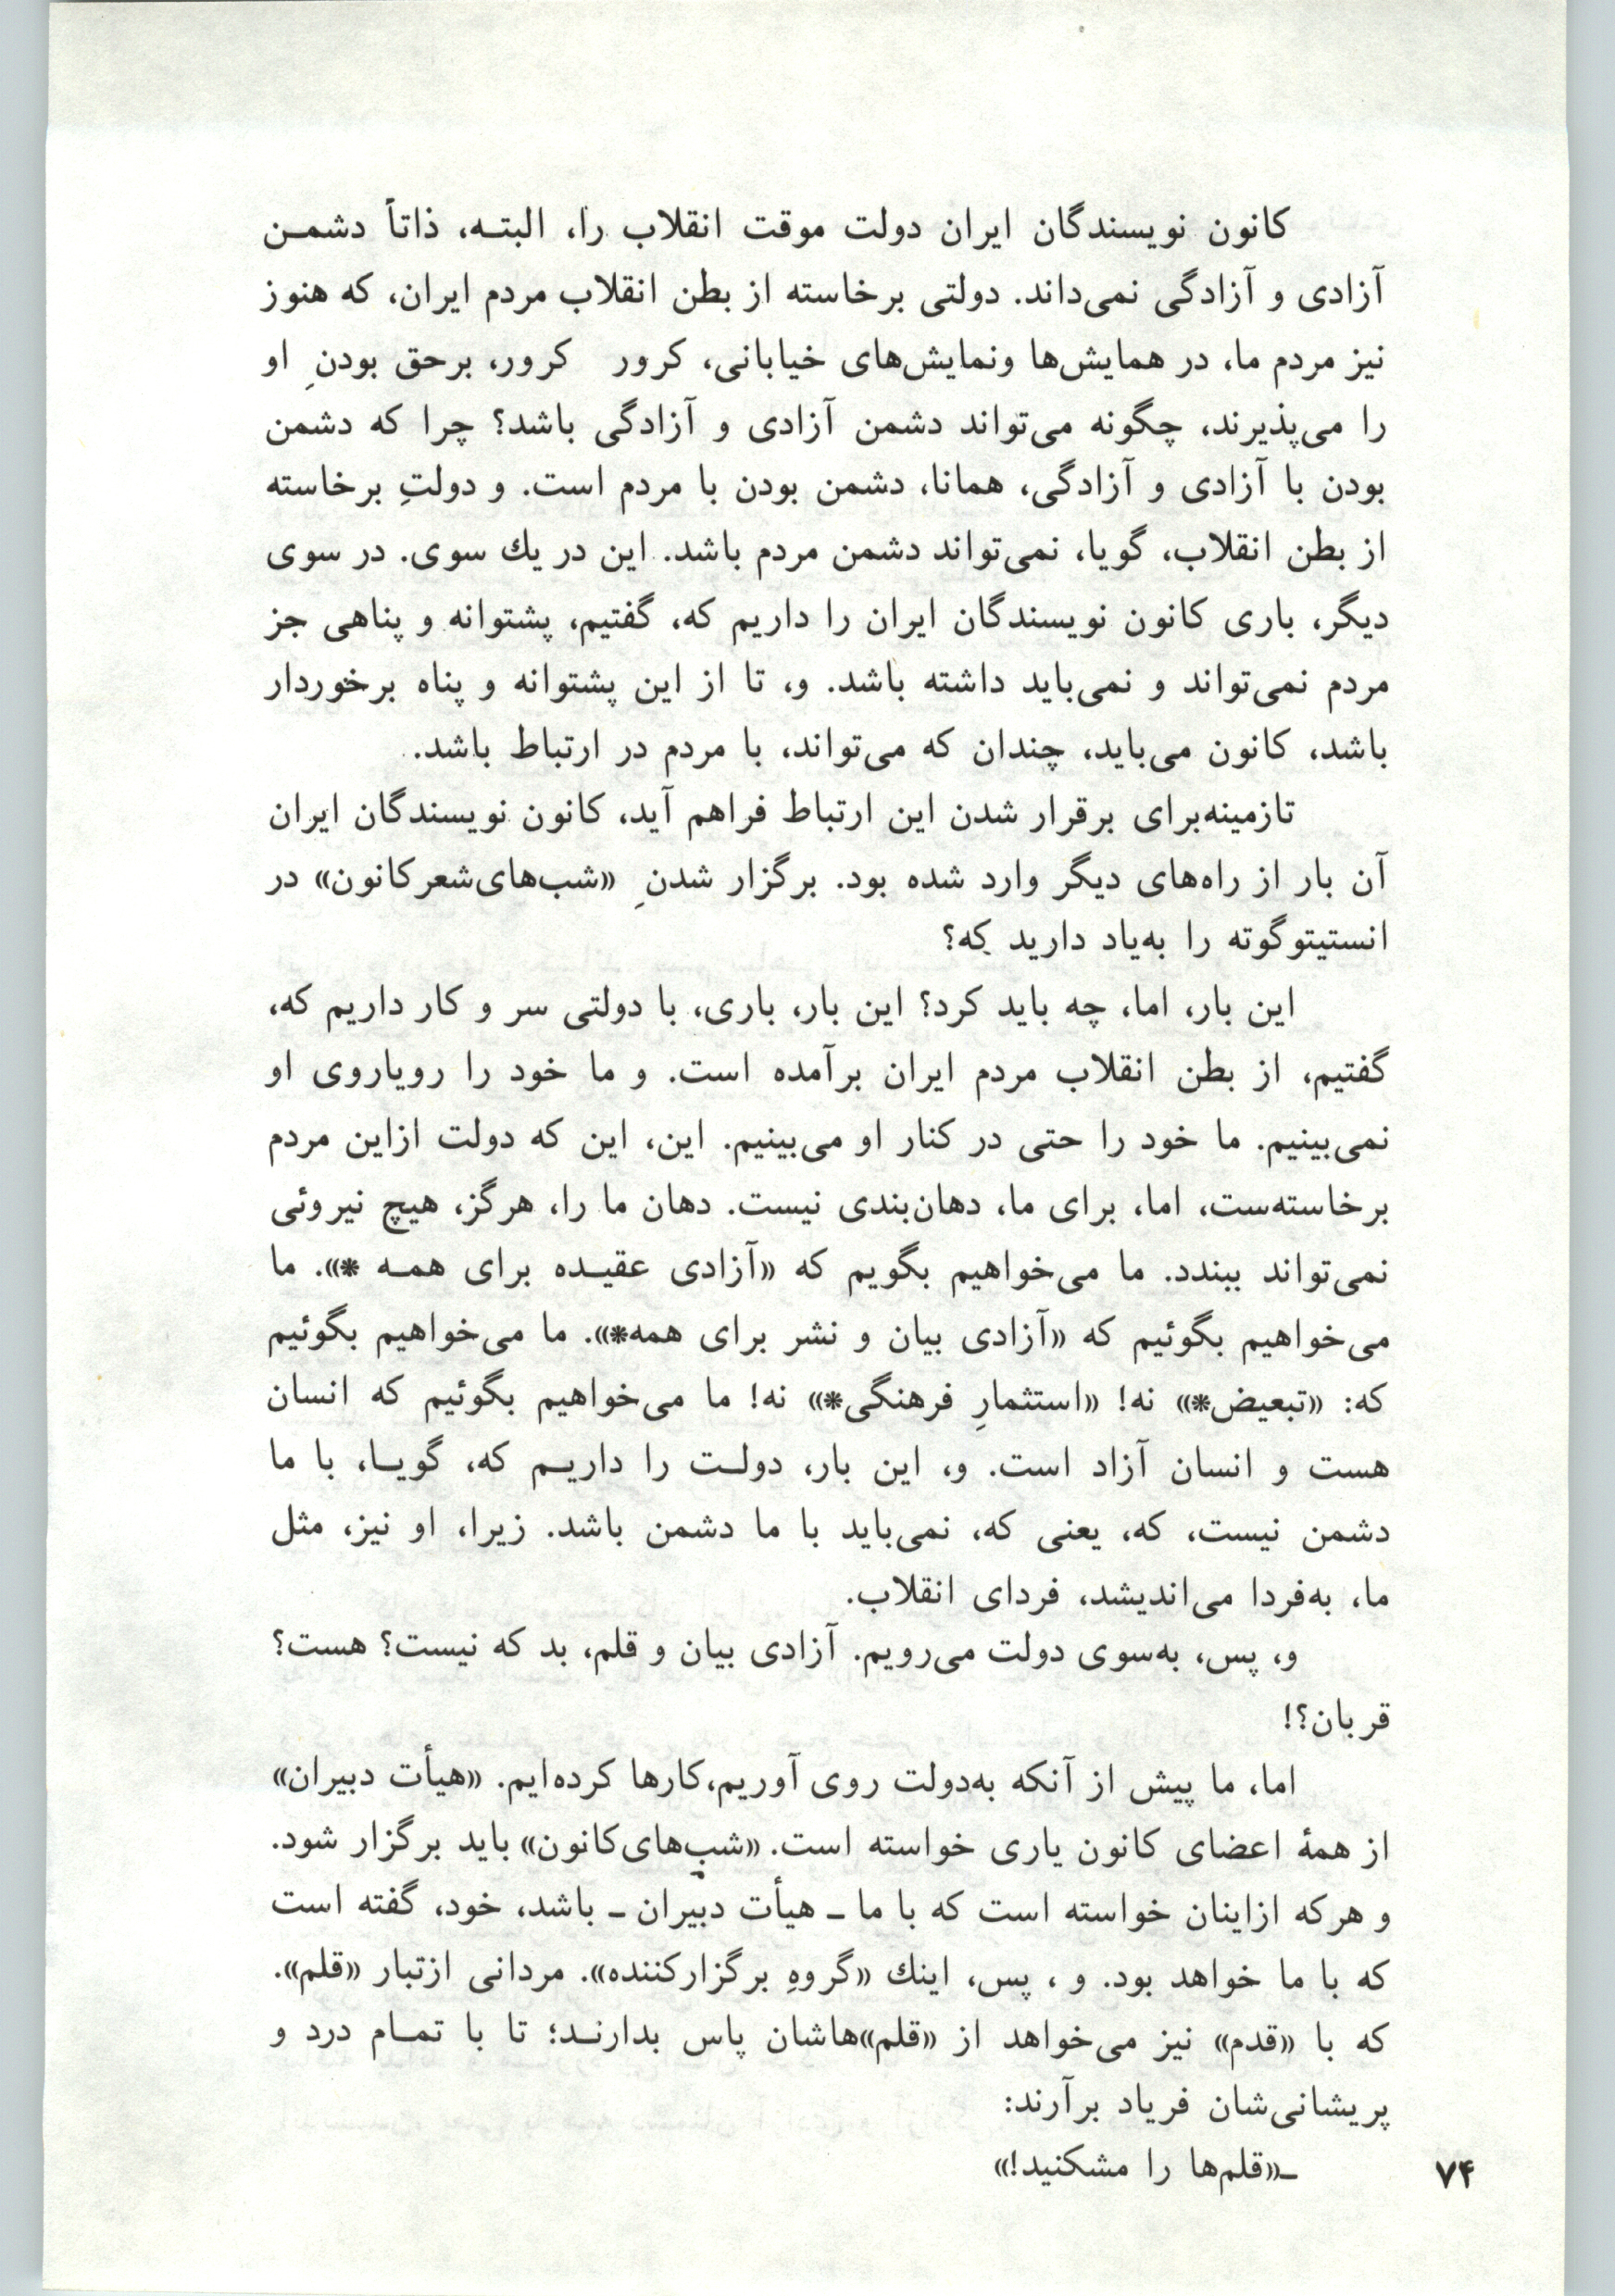 کانون نویسندگان ایران دولت موقت انقلاب را، البتـه، ذاتاً دشمـن
آزادی و آزادگی نمی‌داند. دولتی برخاسته از بطن انقلاب مردم ایران، که هنوز
نیز مردم ما، در همایش‌ها ونمایش‌های خیابانی، کرور کرور، برحق بودنِ او
را می‌پذیرند، چگونه می‌تواند دشمن آزادی و آزادگی باشد؟ چرا که دشمن
بودن با آزادی و آزادگی، همانا، دشمن بودن با مردم است. و دولتِ برخاسته
از بطن انقلاب، گویا، نمی‌تواند دشمن مردم باشد. این در یك سوی. در سوی
دیگر، باری کانون نویسندگان ایران را داریم که، گفتیم، پشتوانه و پناهی جز
مردم نمی‌تواند و نمی‌باید داشته باشد. و، تا از این پشتوانه و پناه برخوردار
باشد، کانون می‌باید، چندان که می‌تواند، با مردم در ارتباط باشد.
تازمینه‌برای برقرار شدن این ارتباط فراهم آید، کانون نویسندگان ایران
آن بار از راه‌های دیگر وارد شده بود. برگزار شدنِ «شب‌های‌شعرکانون» در
انستیتوگوته را به‌یاد دارید که؟
این بار، اما، چه باید کرد؟ این بار، باری، با دولتی سر و کار داریم که،
گفتیم، از بطن انقلاب مردم ایران برآمده است. و ما خود را رویاروی او
نمی‌بینیم. ما خود را حتی در کنار او می‌بینیم. این، این که دولت ازاین مردم
برخاسته‌ست، اما، برای ما، دهان‌بندی نیست. دهان ما را، هرگز، هیچ نیروئی
نمی‌تواند ببندد. ما می‌خواهیم بگویم که «آزادی عقیـده برای همـه *». ما
می‌خواهیم بگوئیم که «آزادی بیان و نشر برای همه*». ما می‌خواهیم بگوئیم
که: «تبعیض*» نه! «استثمارِ فرهنگی*» نه! ما می‌خواهیم بگوئیم که انسان
هست و انسان آزاد است. و، این بار، دولـت را داریـم که، گویـا، با ما
دشمن نیست، که، یعنی که، نمی‌باید با ما دشمن باشد. زیرا، او نیز، مثل
ما، به‌فردا می‌اندیشد، فردای انقلاب.
و، پس، به‌سوی دولت می‌رویم. آزادی بیان و قلم، بد که نیست؟ هست؟
قربان؟!
اما، ما پیش از آنکه به‌دولت روی آوریم،کارها کرده‌ایم. «هیأت دبیران»
از همهٔ اعضای کانون یاری خواسته است. «شب‌های‌کانون» باید برگزار شود.
و هرکه ازاینان خواسته است که با ما ـ هیأت دبیران ـ باشد، خود، گفته است
که با ما خواهد بود. و ، پس، اینك «گروهِ برگزارکننده». مردانی ازتبار «قلم».
که با «قدم» نیز می‌خواهد از «قلم»هاشان پاس بدارنـد؛ تا با تمـام درد و
پریشانی‌شان فریاد برآرند:
ـ«قلم‌ها را مشکنید!»
۷۴